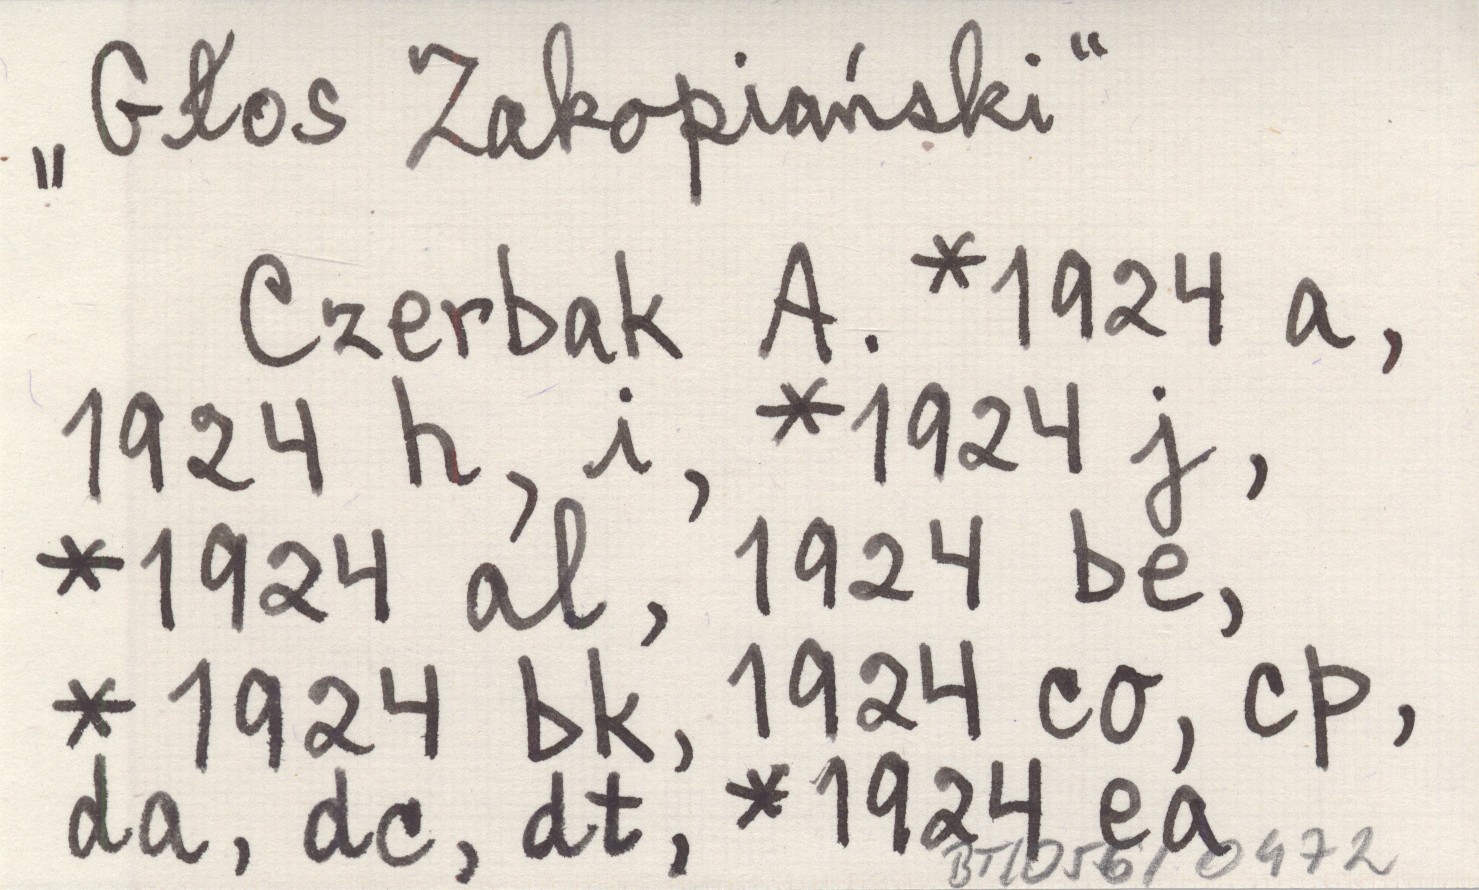 „Głos Zakopiański“
Czerbak A. *1924 a,
1924 h, i, *1924 j,
*1924 al, 1924 be,
*1924 bk, 1924 co, cp,
da, dc, dt, *1924 ea
BT/056/0972